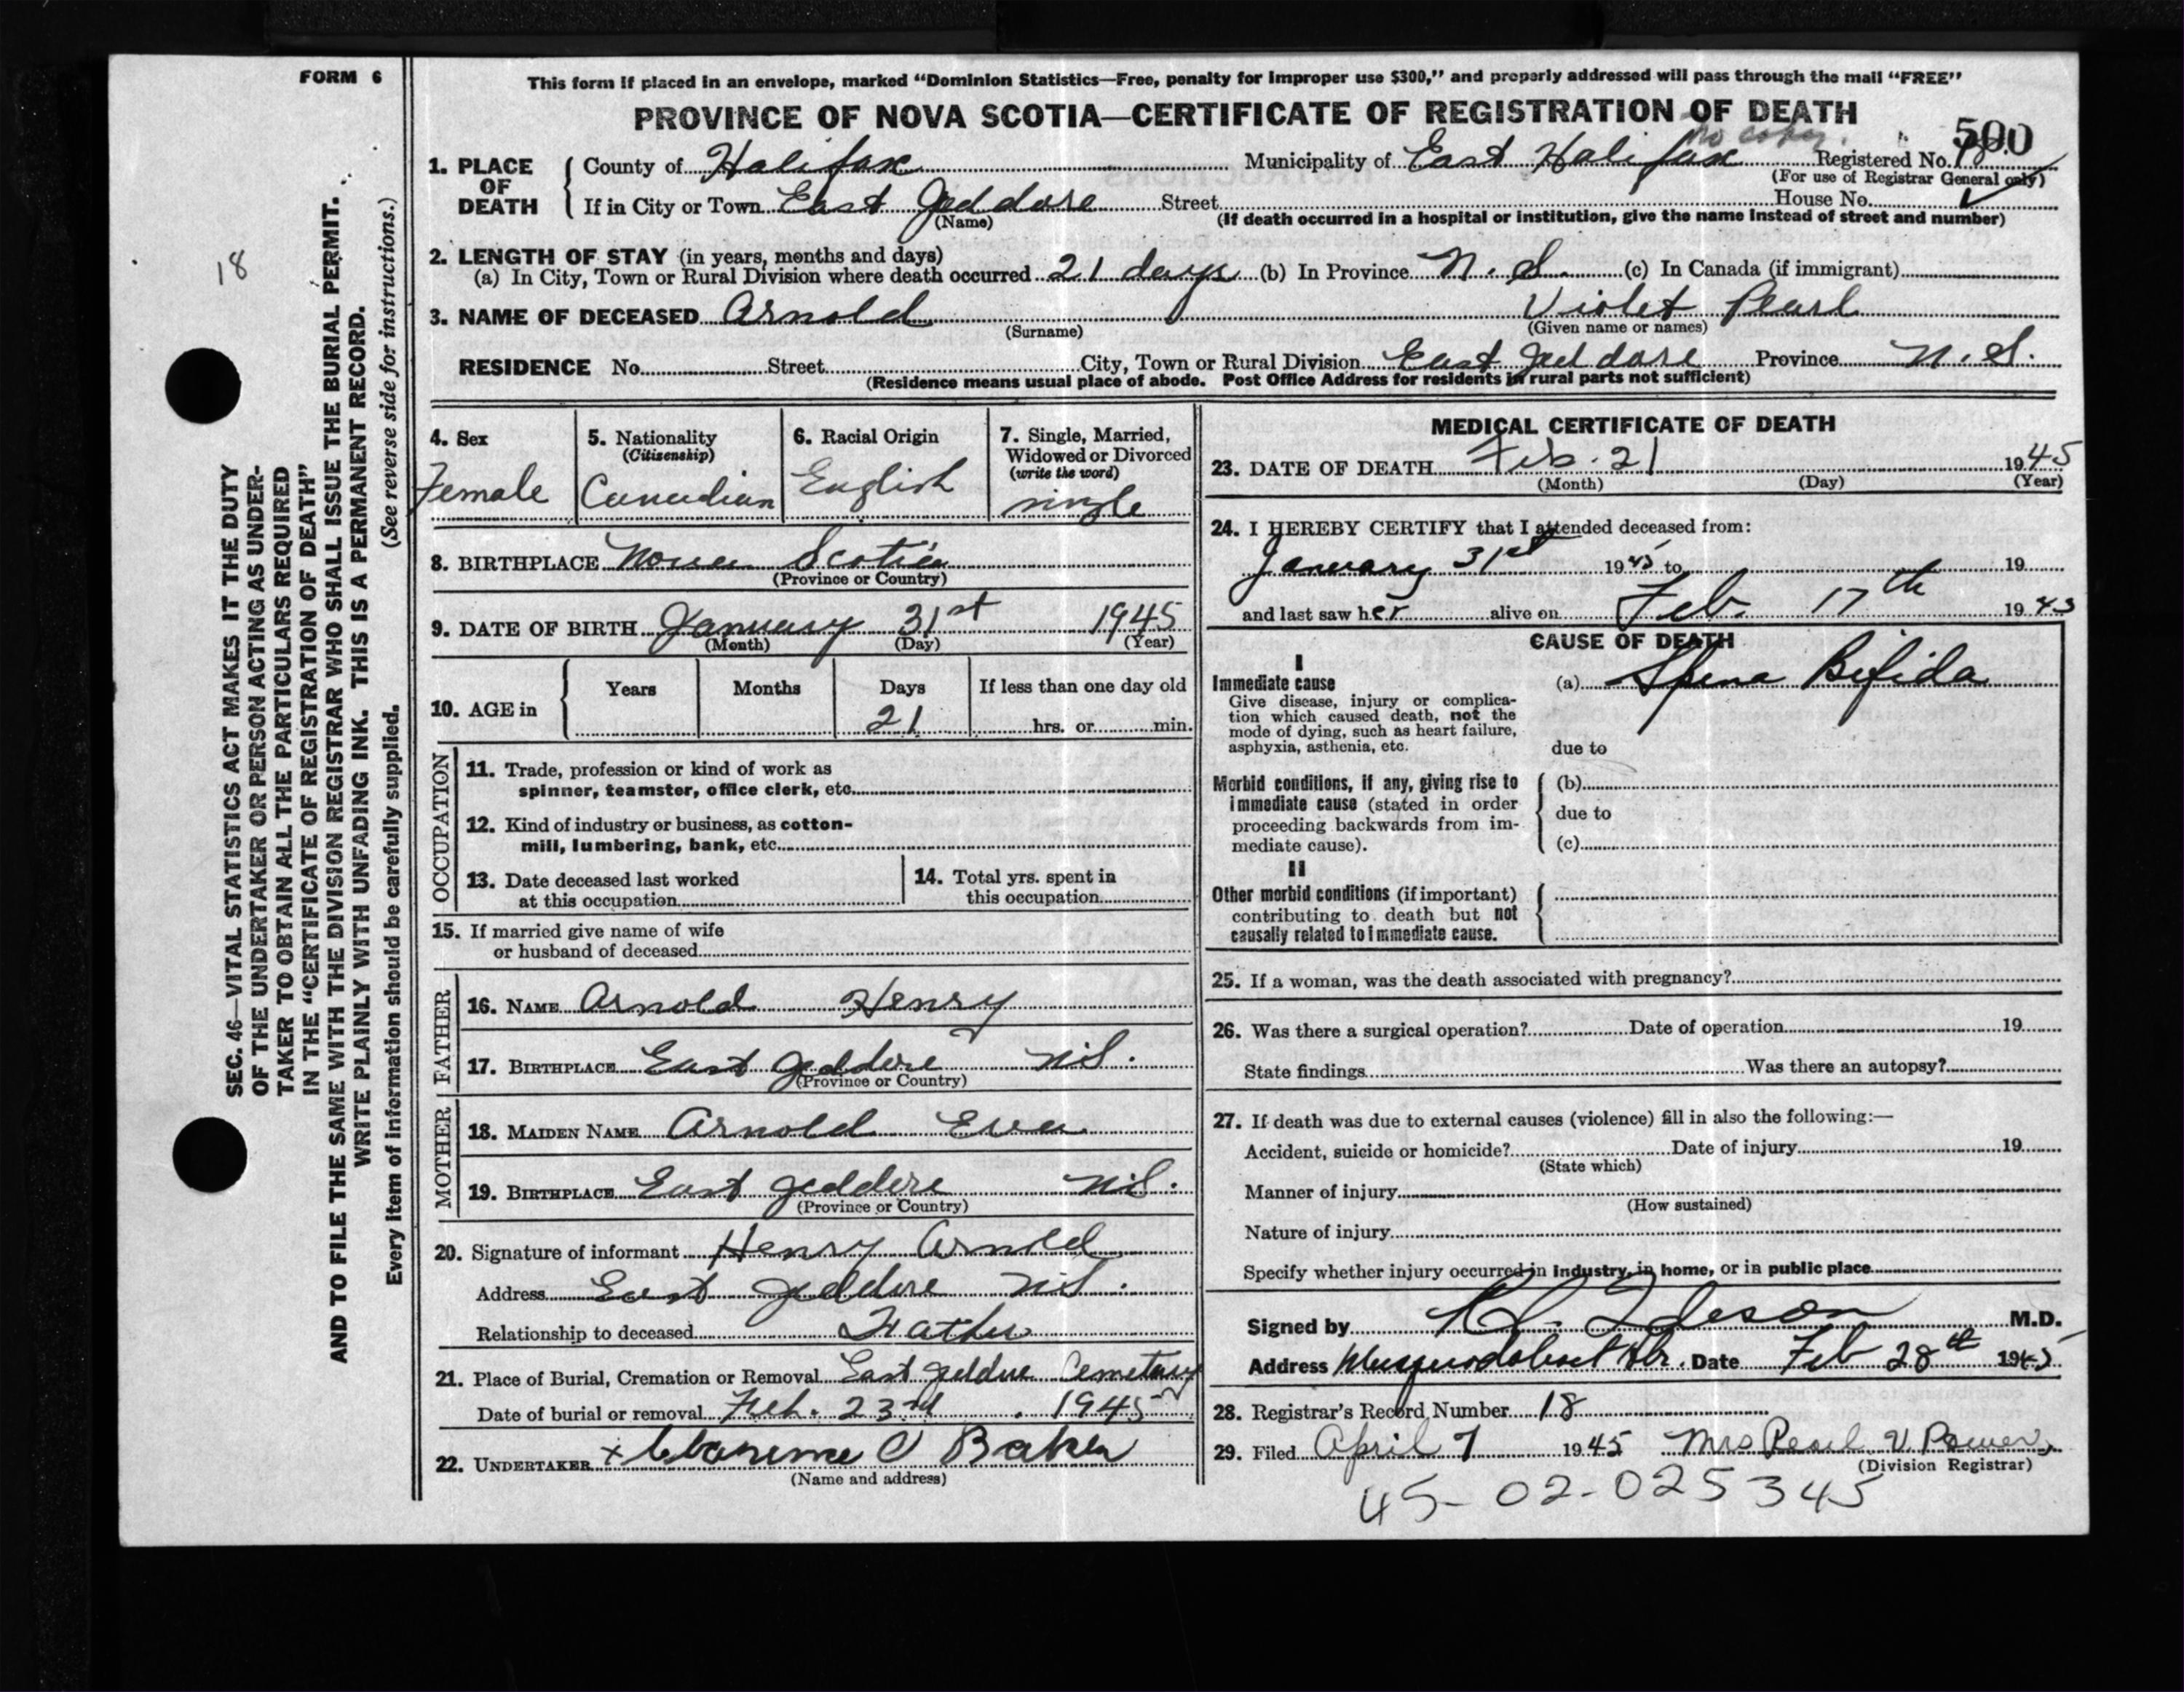 FORM 6
This form if placed in an envelope, marked “Dominion Statistics—Free, penalty for improper use $300,” and properly addressed will pass through the mail “FREE”
PROVINCE OF NOVA SCOTIA—CERTIFICATE OF REGISTRATION OF DEATH
no copy. 500
1. PLACE OF DEATH County of Halifax Municipality of East Halifax Registered No. 18
(For use of Registrar General only)
If in City or Town East Jeddore Street House No.
(Name) (If death occurred in a hospital or institution, give the name instead of street and number)
2. LENGTH OF STAY (in years, months and days)
(a) In City, Town or Rural Division where death occurred 21 days (b) In Province N. S. (c) In Canada (if immigrant)
3. NAME OF DECEASED Arnold Violet Pearl
(Surname) (Given name or names)
RESIDENCE No. Street City, Town or Rural Division East Jeddore Province N. S.
(Residence means usual place of abode. Post Office Address for residents in rural parts not sufficient)
4. Sex 5. Nationality (Citizenship) 6. Racial Origin 7. Single, Married, Widowed or Divorced (write the word)
Female Canadian English single
8. BIRTHPLACE Nova Scotia
(Province or Country)
9. DATE OF BIRTH January 31st 1945
(Month) (Day) (Year)
10. AGE in Years Months Days If less than one day old
21 hrs. or min.
OCCUPATION
11. Trade, profession or kind of work as
spinner, teamster, office clerk, etc.
12. Kind of industry or business, as cotton-
mill, lumbering, bank, etc.
13. Date deceased last worked
at this occupation
14. Total yrs. spent in
this occupation
15. If married give name of wife
or husband of deceased
FATHER
16. NAME Arnold Henry
17. BIRTHPLACE East Jeddore N.S.
(Province or Country)
MOTHER
18. MAIDEN NAME Arnold Eva
19. BIRTHPLACE East Jeddore N.S.
(Province or Country)
20. Signature of informant Henry Arnold
Address East Jeddore N.S.
Relationship to deceased Father
21. Place of Burial, Cremation or Removal East Jeddore Cemetary
Date of burial or removal Feb. 23rd. 1945
22. UNDERTAKER x Clarence C Baker
(Name and address)
MEDICAL CERTIFICATE OF DEATH
23. DATE OF DEATH Feb. 21 1945
(Month) (Day) (Year)
24. I HEREBY CERTIFY that I attended deceased from:
January 31st 1945 to 19
and last saw her alive on Feb. 17th 1945
CAUSE OF DEATH
I
Immediate cause
Give disease, injury or complica-
tion which caused death, not the
mode of dying, such as heart failure,
asphyxia, asthenia, etc.
(a) Spina Bifida
due to
Morbid conditions, if any, giving rise to
immediate cause (stated in order
proceeding backwards from im-
mediate cause).
(b)
due to
(c)
II
Other morbid conditions (if important)
contributing to death but not
causally related to immediate cause.
25. If a woman, was the death associated with pregnancy?
26. Was there a surgical operation? Date of operation 19
State findings Was there an autopsy?
27. If death was due to external causes (violence) fill in also the following:—
Accident, suicide or homicide? Date of injury 19
(State which)
Manner of injury
(How sustained)
Nature of injury
Specify whether injury occurred in industry, in home, or in public place
Signed by M.D.
Address Musquodoboit Hbr. Date Feb 28th 1945
28. Registrar's Record Number 18
29. Filed April 7 1945 Mrs Pearl V. Power
(Division Registrar)
45-02-025345
18
SEC. 46—VITAL STATISTICS ACT MAKES IT THE DUTY
OF THE UNDERTAKER OR PERSON ACTING AS UNDER-
TAKER TO OBTAIN ALL THE PARTICULARS REQUIRED
IN THE “CERTIFICATE OF REGISTRATION OF DEATH”
AND TO FILE THE SAME WITH THE DIVISION REGISTRAR WHO SHALL ISSUE THE BURIAL PERMIT.
WRITE PLAINLY WITH UNFADING INK. THIS IS A PERMANENT RECORD.
Every item of information should be carefully supplied. (See reverse side for instructions.)